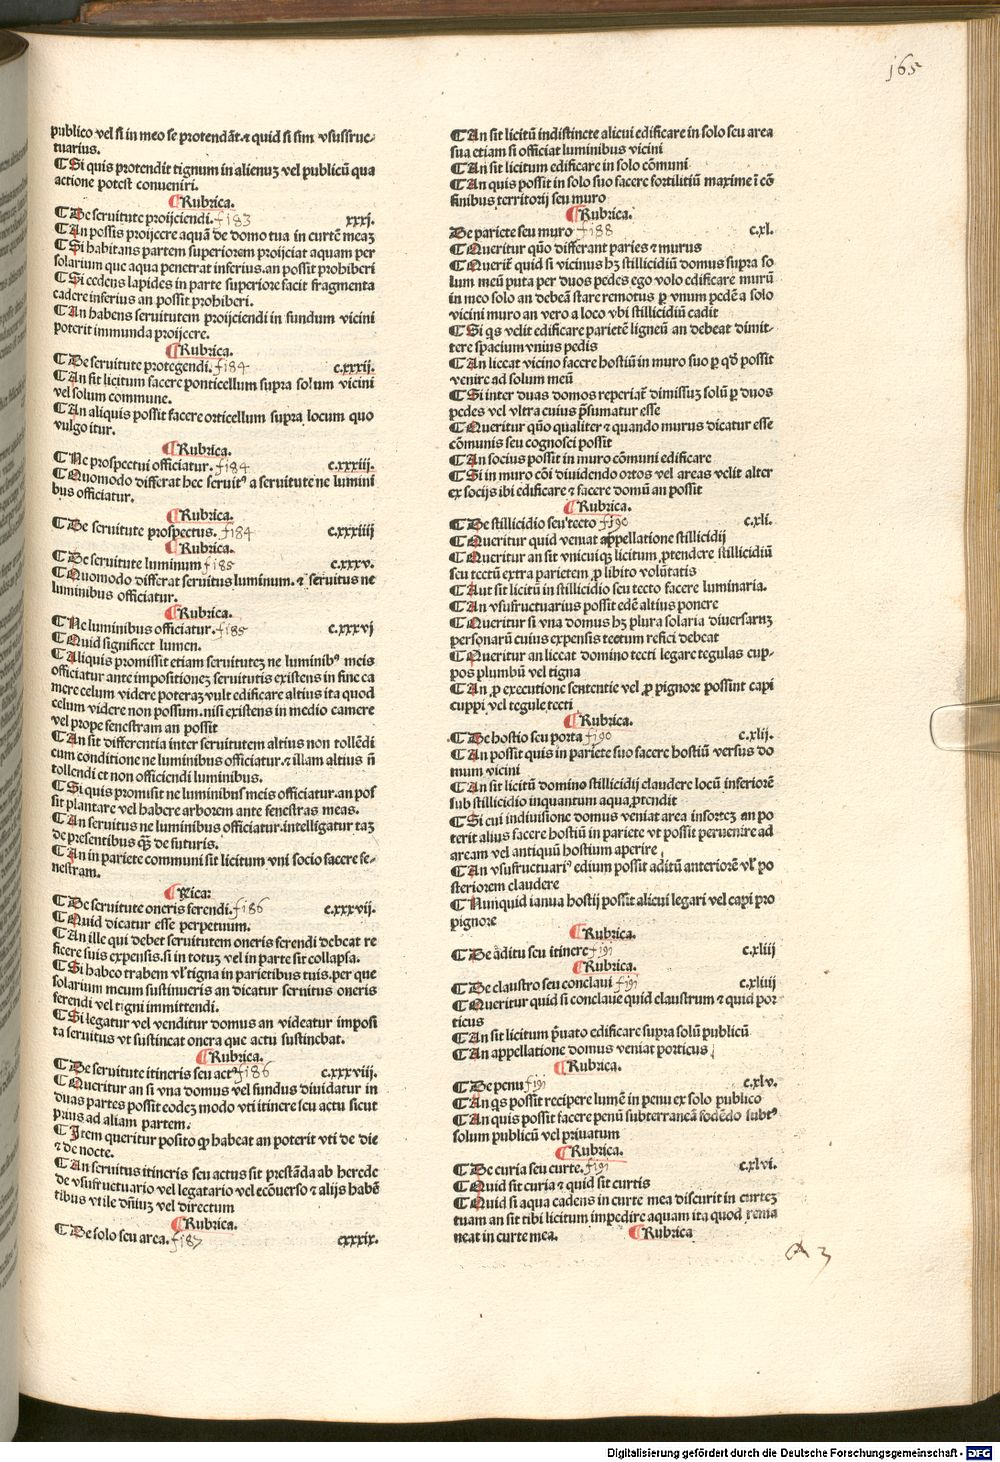 165
publico vel si in meo se protendāt. ⁊ quid si sim vsufruc⸗
tuarius.
¶ Si quis protendit tignum in alienuꝫ vel publicū qua
actione potest conueniri.
¶ Rubrica.
¶ De seruitute proijciendi. f 183 xxxj.
¶ An possis proijcere aquā de domo tua in curtē meaꝫ
¶ Si habitans partem superiorem proijciat aquam per
solarium que aqua penetrat inferius. an possit prohiberi
¶ Si cedens lapides in parte superiore facit fragmenta
cadere inferius an possit prohiberi.
¶ An habens seruitutem proijciendi in fundum vicini
poterit immunda proijcere.
¶ Rubrica.
¶ De seruitute protegendi. f 184 c.xxxij.
¶ An sit licitum facere ponticellum supra solum vicini
vel solum commune.
¶ An aliquis possit facere orticellum supra locum quo
vulgo itur.
¶ Rubrica.
¶ Ne prospectui officiatur. f 184 c.xxxiij.
¶ Quomodo differat hec seruitꝰ a seruitute ne lumini
bus officiatur.
¶ Rubrica.
¶ De seruitute prospectus. f 184 c.xxxiiij
¶ Rubrica.
¶ De seruitute luminum f 185 c.xxxv.
¶ Quomodo differat seruitus luminum. ⁊ seruitus ne
luminibus officiatur.
¶ Rubrica.
¶ Ne luminibus officiatur. f 185 c.xxxvj
¶ Quid significet lumen.
¶ Aliquis promissit etiam seruituteꝫ ne luminibꝰ meis
officiatur ante impositioneꝫ seruitutis existens in fine ca
mere celum videre poteraꝫ vult edificare altius ita quod
celum videre non possum. nisi existens in medio camere
vel prope fenestram an possit
¶ An sit differentia inter seruitutem altius non tollēdi
cum conditione ne luminibus officiatur. ⁊ illam altius ñ
tollendi et non officiendi luminibus.
¶ Si quis promisit ne luminibus meis officiatur. an pos
sit plantare vel habere arborem ante fenestras meas.
¶ An seruitus ne luminibus officiatur. intelligatur taꝫ
de presentibus qꝫ̄ de futuris.
¶ An in pariete communi sit licitum vni socio facere fe⸗
nestram.
¶ Rica:
¶ De seruitute oneris ferendi. f 186 c.xxxvij.
¶ Quid dicatur esse perpetuum.
¶ An ille qui debet seruitutem oneris ferendi debeat re
ficere suis expensis. si in totuꝫ vel in parte sit collapsa.
¶ Si habeo trabem vl̕ tigna in parietibus tuis. per que
solarium meum sustineris an dicatur seruitus oneris
ferendi vel tigni immittendi.
¶ Si legatur vel venditur domus an videatur imposi
ta seruitus vt sustineat onera que actu sustinebat.
¶ Rubrica.
¶ De seruitute itineris seu actꝰ f 186 c.xxxviij.
¶ Queritur an si vna domus vel fundus diuidatur in
duas partes possit eodeꝫ modo vti itinere seu actu sicut
prius ad aliam partem.
¶ Item queritur posito ꝙ habeat an poterit vti de die
⁊ de nocte.
¶ An seruitus itineris seu actus sit prestāda ab herede
de vsufructuario vel legatario vel ecōuerso ⁊ alijs habē
tibus vtile dñiuꝫ vel directum
¶ Rubrica.
¶ De solo seu area. f 187 cxxxix.
¶ An sit licitū indistincte alicui edificare in solo seu area
sua etiam si officiat luminibus vicini
¶ An sit licitum edificare in solo cōmuni
¶ An quis possit in solo suo facere fortilitiū maxime ī cō
finibus territorij seu muro
¶ Rubrica.
De pariete seu muro f 188 c.xl.
¶ Queritur quō differant paries ⁊ murus
¶ Querit̄ quid si vicinus hꝫ stillicidiū domus supra so
lum meū puta per duos pedes ego volo edificare murū
in meo solo an debeā stare remotus ꝑ vnum pedē a solo
vicini muro an vero a loco vbi stillicidiū cadit
¶ Si qs velit edificare parietē ligneū an debeat dimit⸗
tere spacium vnius pedis
¶ An liceat vicino facere hostiū in muro suo ꝑ qđ possit
venire ad solum meū
¶ Si inter duas domos reperiat̄ dimissuꝫ solū ꝑ duos
pedes vel vltra cuius p̄sumatur esse
¶ Queritur quō qualiter ⁊ quando murus dicatur esse
cōmunis seu cognosci possit
¶ An socius possit in muro cōmuni edificare
¶ Si in muro cōi diuidendo ortos vel areas velit alter
ex socijs ibi edificare ⁊ facere domū an possit
¶ Rubrica.
¶ De stillicidio seu tecto f 190 c.xli.
¶ Queritur quid veniat appellatione stillicidij
¶ Queritur an sit vnicuiqꝫ licitum ꝓtendere stillicidiū
seu tectū extra parietem ꝓ libito volūtatis
¶ Aut sit licitū in stillicidio seu tecto facere luminaria.
¶ An vsufructuarius possit edē altius ponere
¶ Queritur si vna domus hꝫ plura solaria diuersarꝫ
personarū cuius expensis tectum refici debeat
¶ Queritur an liceat domino tecti legare tegulas cup⸗
pos plumbū vel tigna
¶ An ꝓ executione sententie vel ꝓ pignore possint capi
cuppi vel tegule tecti
¶ Rubrica.
¶ De hostio seu porta f 190 c.xlij.
¶ An possit quis in pariete suo facere hostiū versus do
mum vicini
¶ An sit licitū domino stillicidij claudere locū inferiorē
sub stillicidio inquantum aqua ꝓtendit
¶ Si cui indiuisione domus veniat area insorteꝫ an po
terit alius facere hostiū in pariete vt possit peruenire ad
aream vel antiquū hostium aperire
¶ An vsufructuariꝰ edium possit aditū anteriorē vl̕ po
steriorem claudere
¶ Nunquid ianua hostij possit alicui legari vel capi pro
pignore
¶ Rubrica.
¶ De aditu seu itinere f 191 c.xliii
¶ Rubrica.
¶ De claustro seu conclaui f 191 c.xliiij
¶ Queritur quid si conclaue quid claustrum ⁊ quid por
ticus
¶ An sit licitum p̄uato edificare supra solū publicū
¶ An appellatione domus veniat porticus
¶ Rubrica.
¶ De penu f 191 c.xlv.
¶ An qs possit recipere lumē in penu ex solo publico
¶ An quis possit facere penū subterraneā fodēdo subtꝰ
solum publicū vel priuatum
¶ Rubrica.
¶ De curia seu curte. f 191 c.xlvi.
¶ Quid sit curia ⁊ quid sit curtis
¶ Quid si aqua cadens in curte mea discurit in curteꝫ
tuam an sit tibi licitum impedire aquam ita quod rema
neat in curte mea. ¶ Rubrica
Digitalisierung gefördert durch die Deutsche Forschungsgemeinschaft - DFG